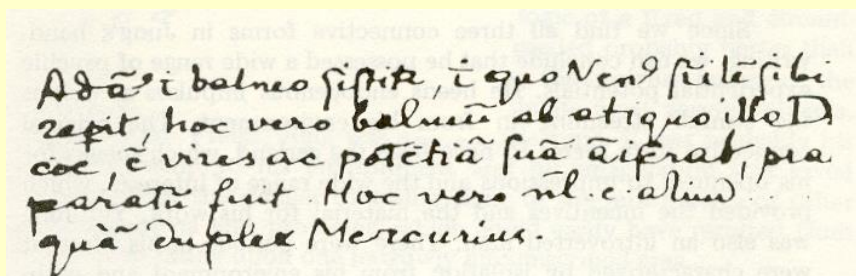 Adā i balneo sistitr ī quo Venꝰ silē sibi
repit, hoc vero balneū ab atiquo illo D
coc ē, vires ac potētiā suā āiserat pra
paratū fuit. Hoc vero nīl e aliud
quā duplex Mercurius.